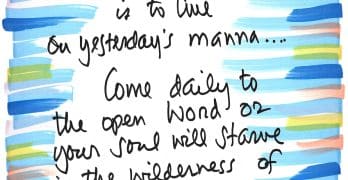 is to live
on yesterday's manna....
Come daily to
the open Word or
your soul will starve
in the wilderness of